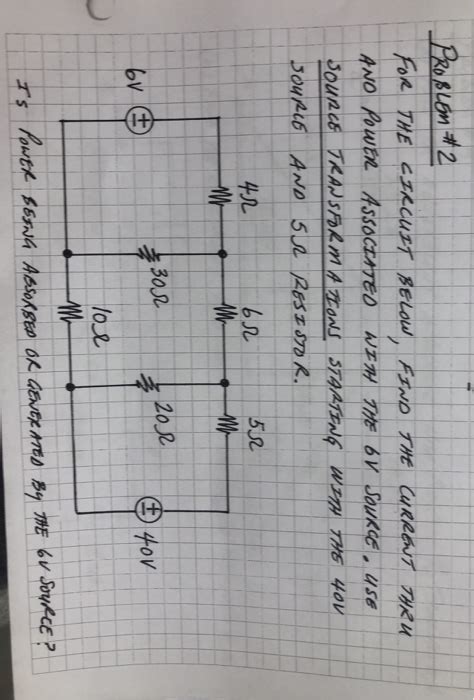 PROBLEM #2
FOR THE CIRCUIT BELOW, FIND THE CURRENT THRU
AND POWER ASSOCIATED WITH THE 6V SOURCE. USE
SOURCE TRANSFORMATIONS STARTING WITH THE 40V
SOURCE AND 5Ω RESISTOR.
4Ω 6Ω 5Ω
6V 30Ω 20Ω 40V
10Ω
IS POWER BEING ABSORBED OR GENERATED BY THE 6V SOURCE?